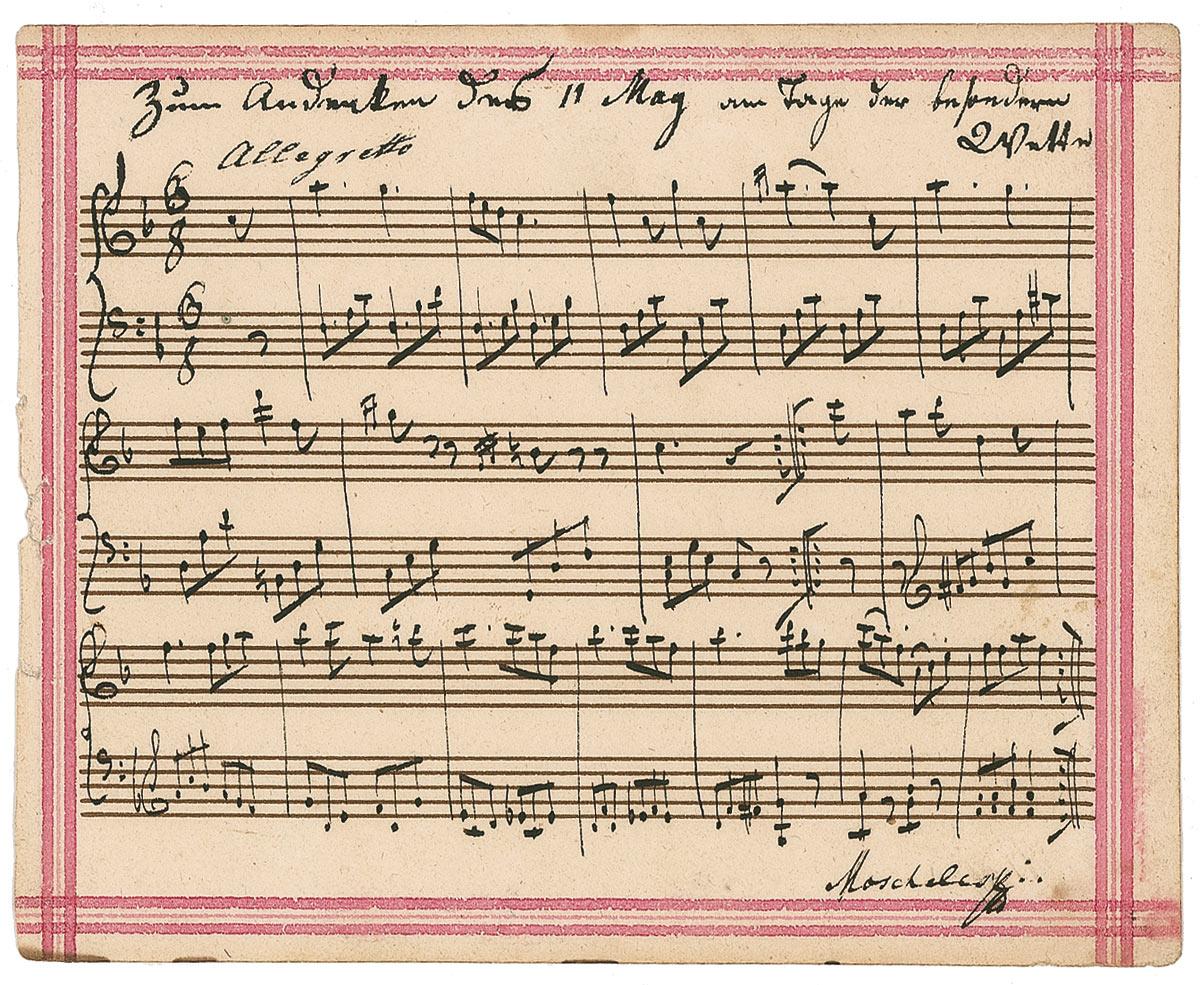 Zum Andenken des 11 May am Tage der besondern
Wette
Allegretto
6
8
6
8
Moscheles